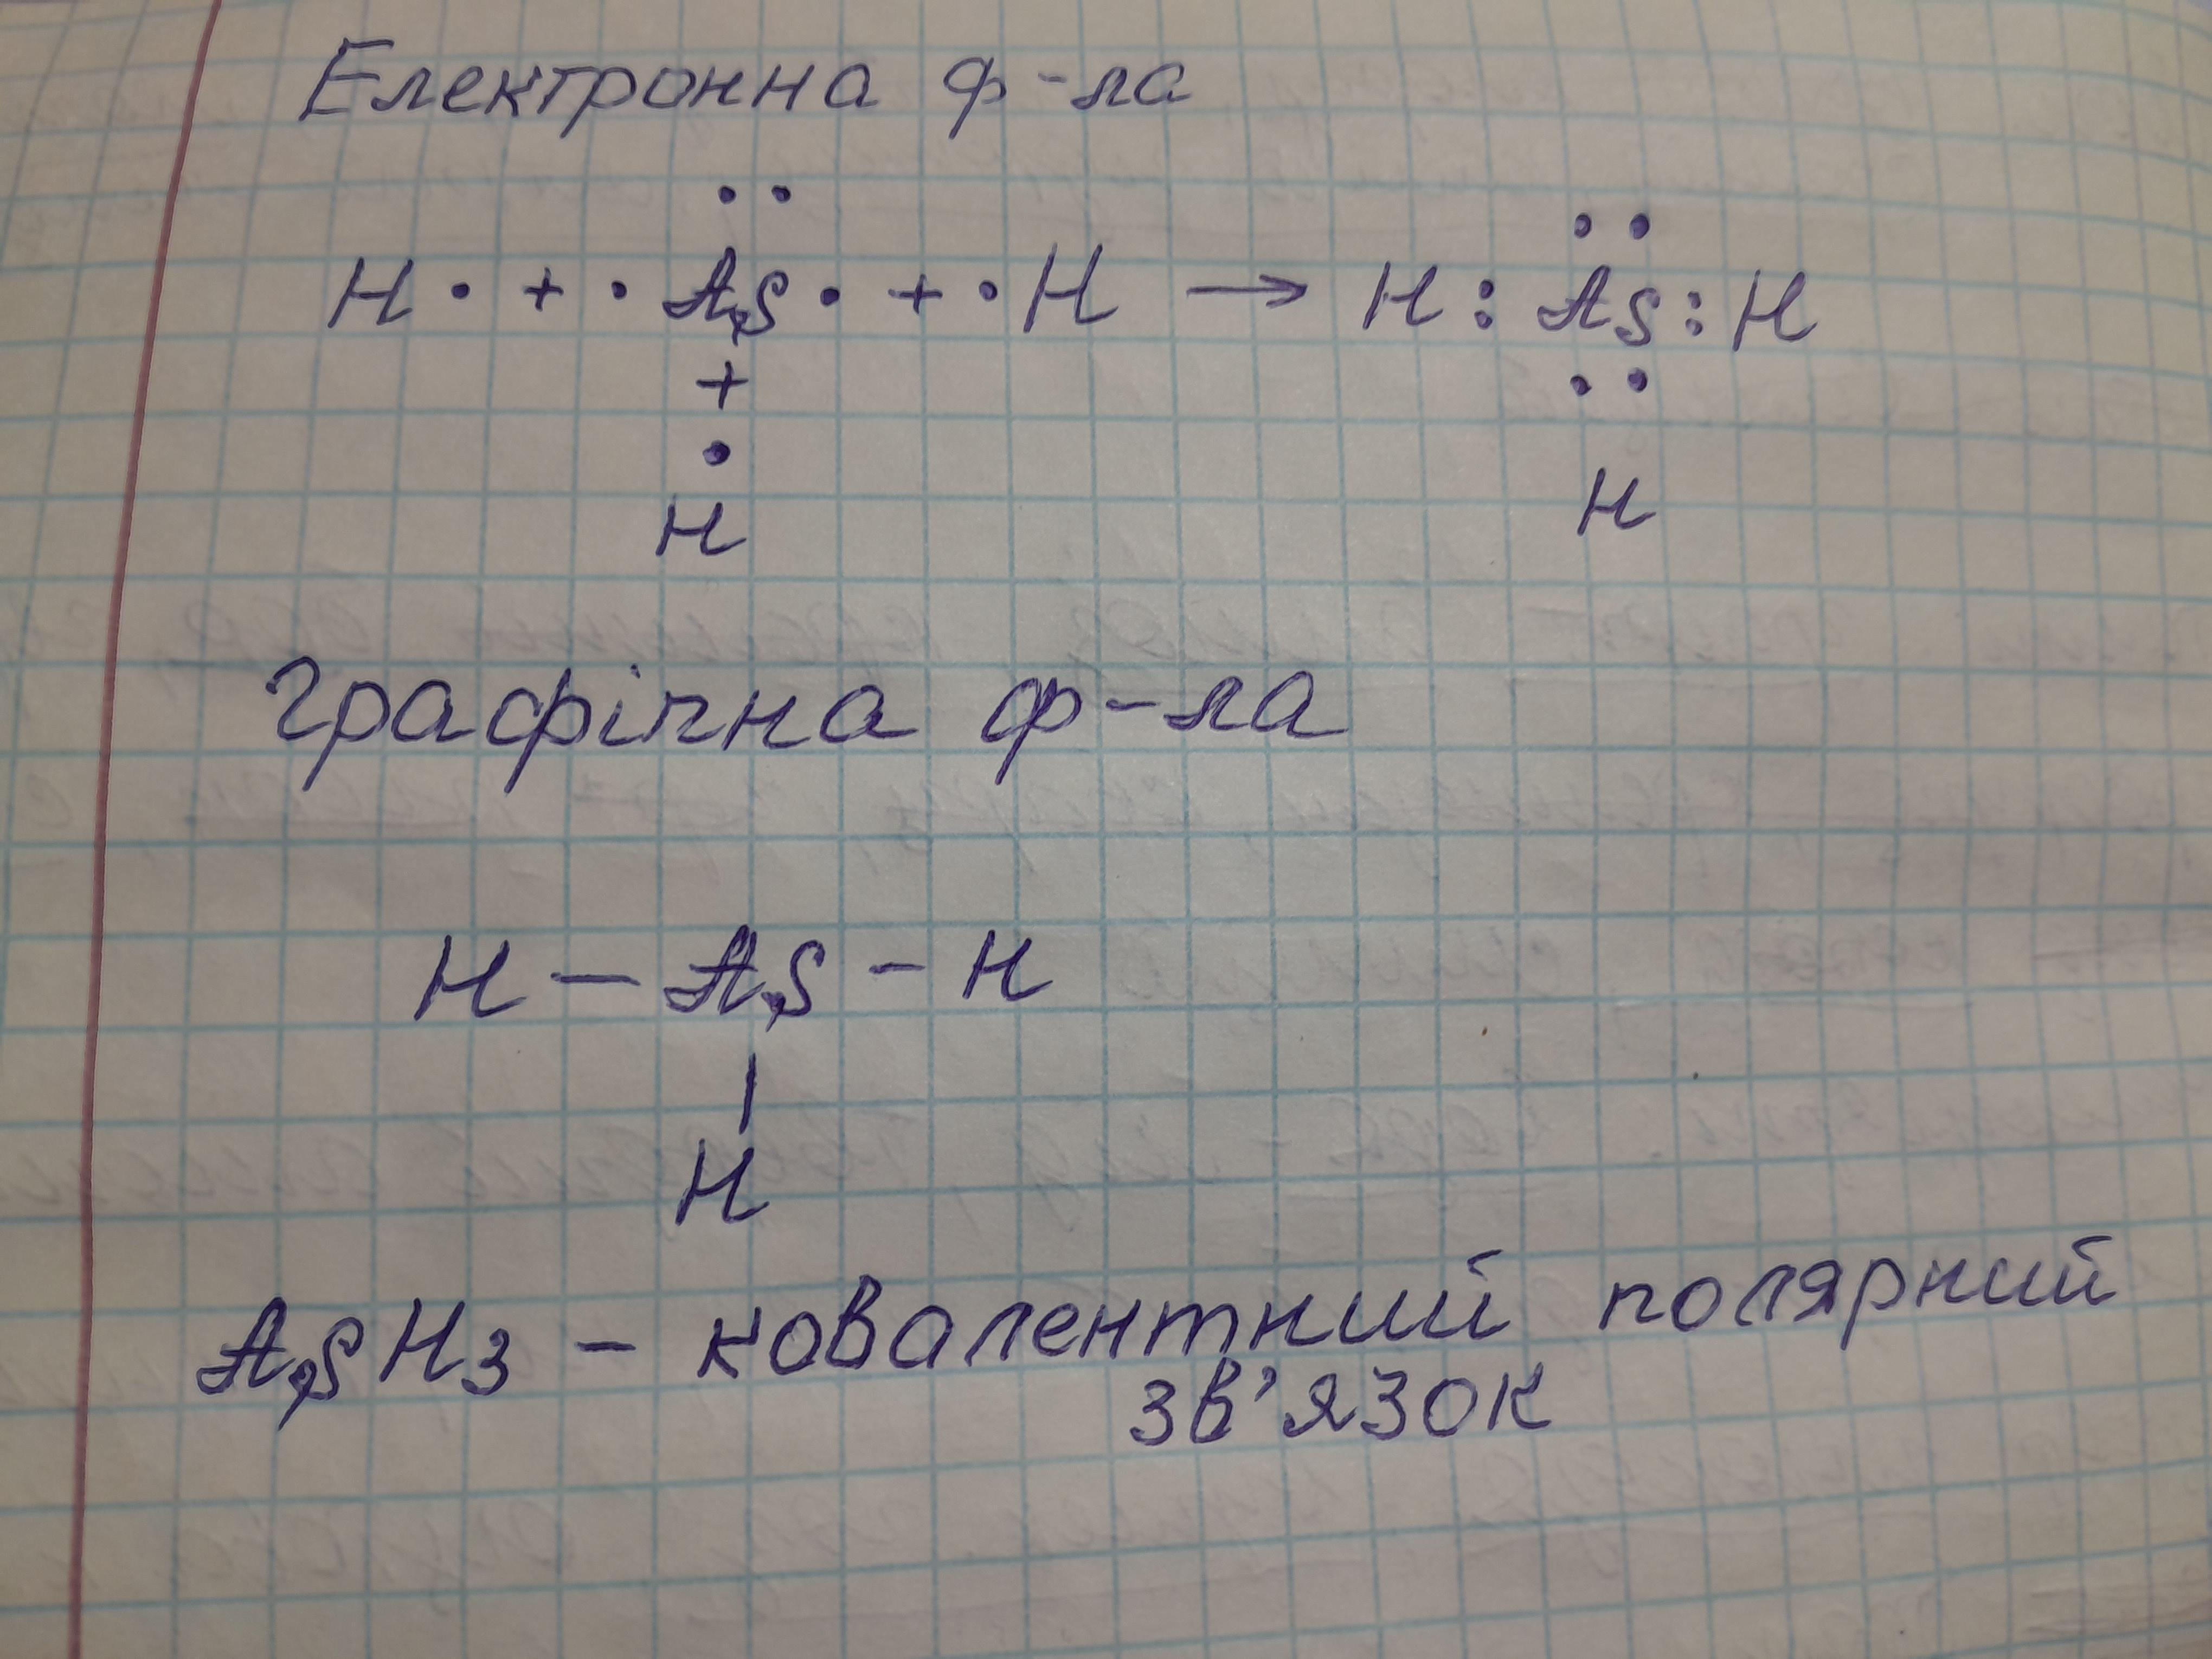 Електронна ф-ла
··
··
H· + ·As· + ·H → H:As:H
+
··
·
H
H
Графічна ф-ла
H – As – H
|
H
AsH3 – ковалентний полярний
зв'язок